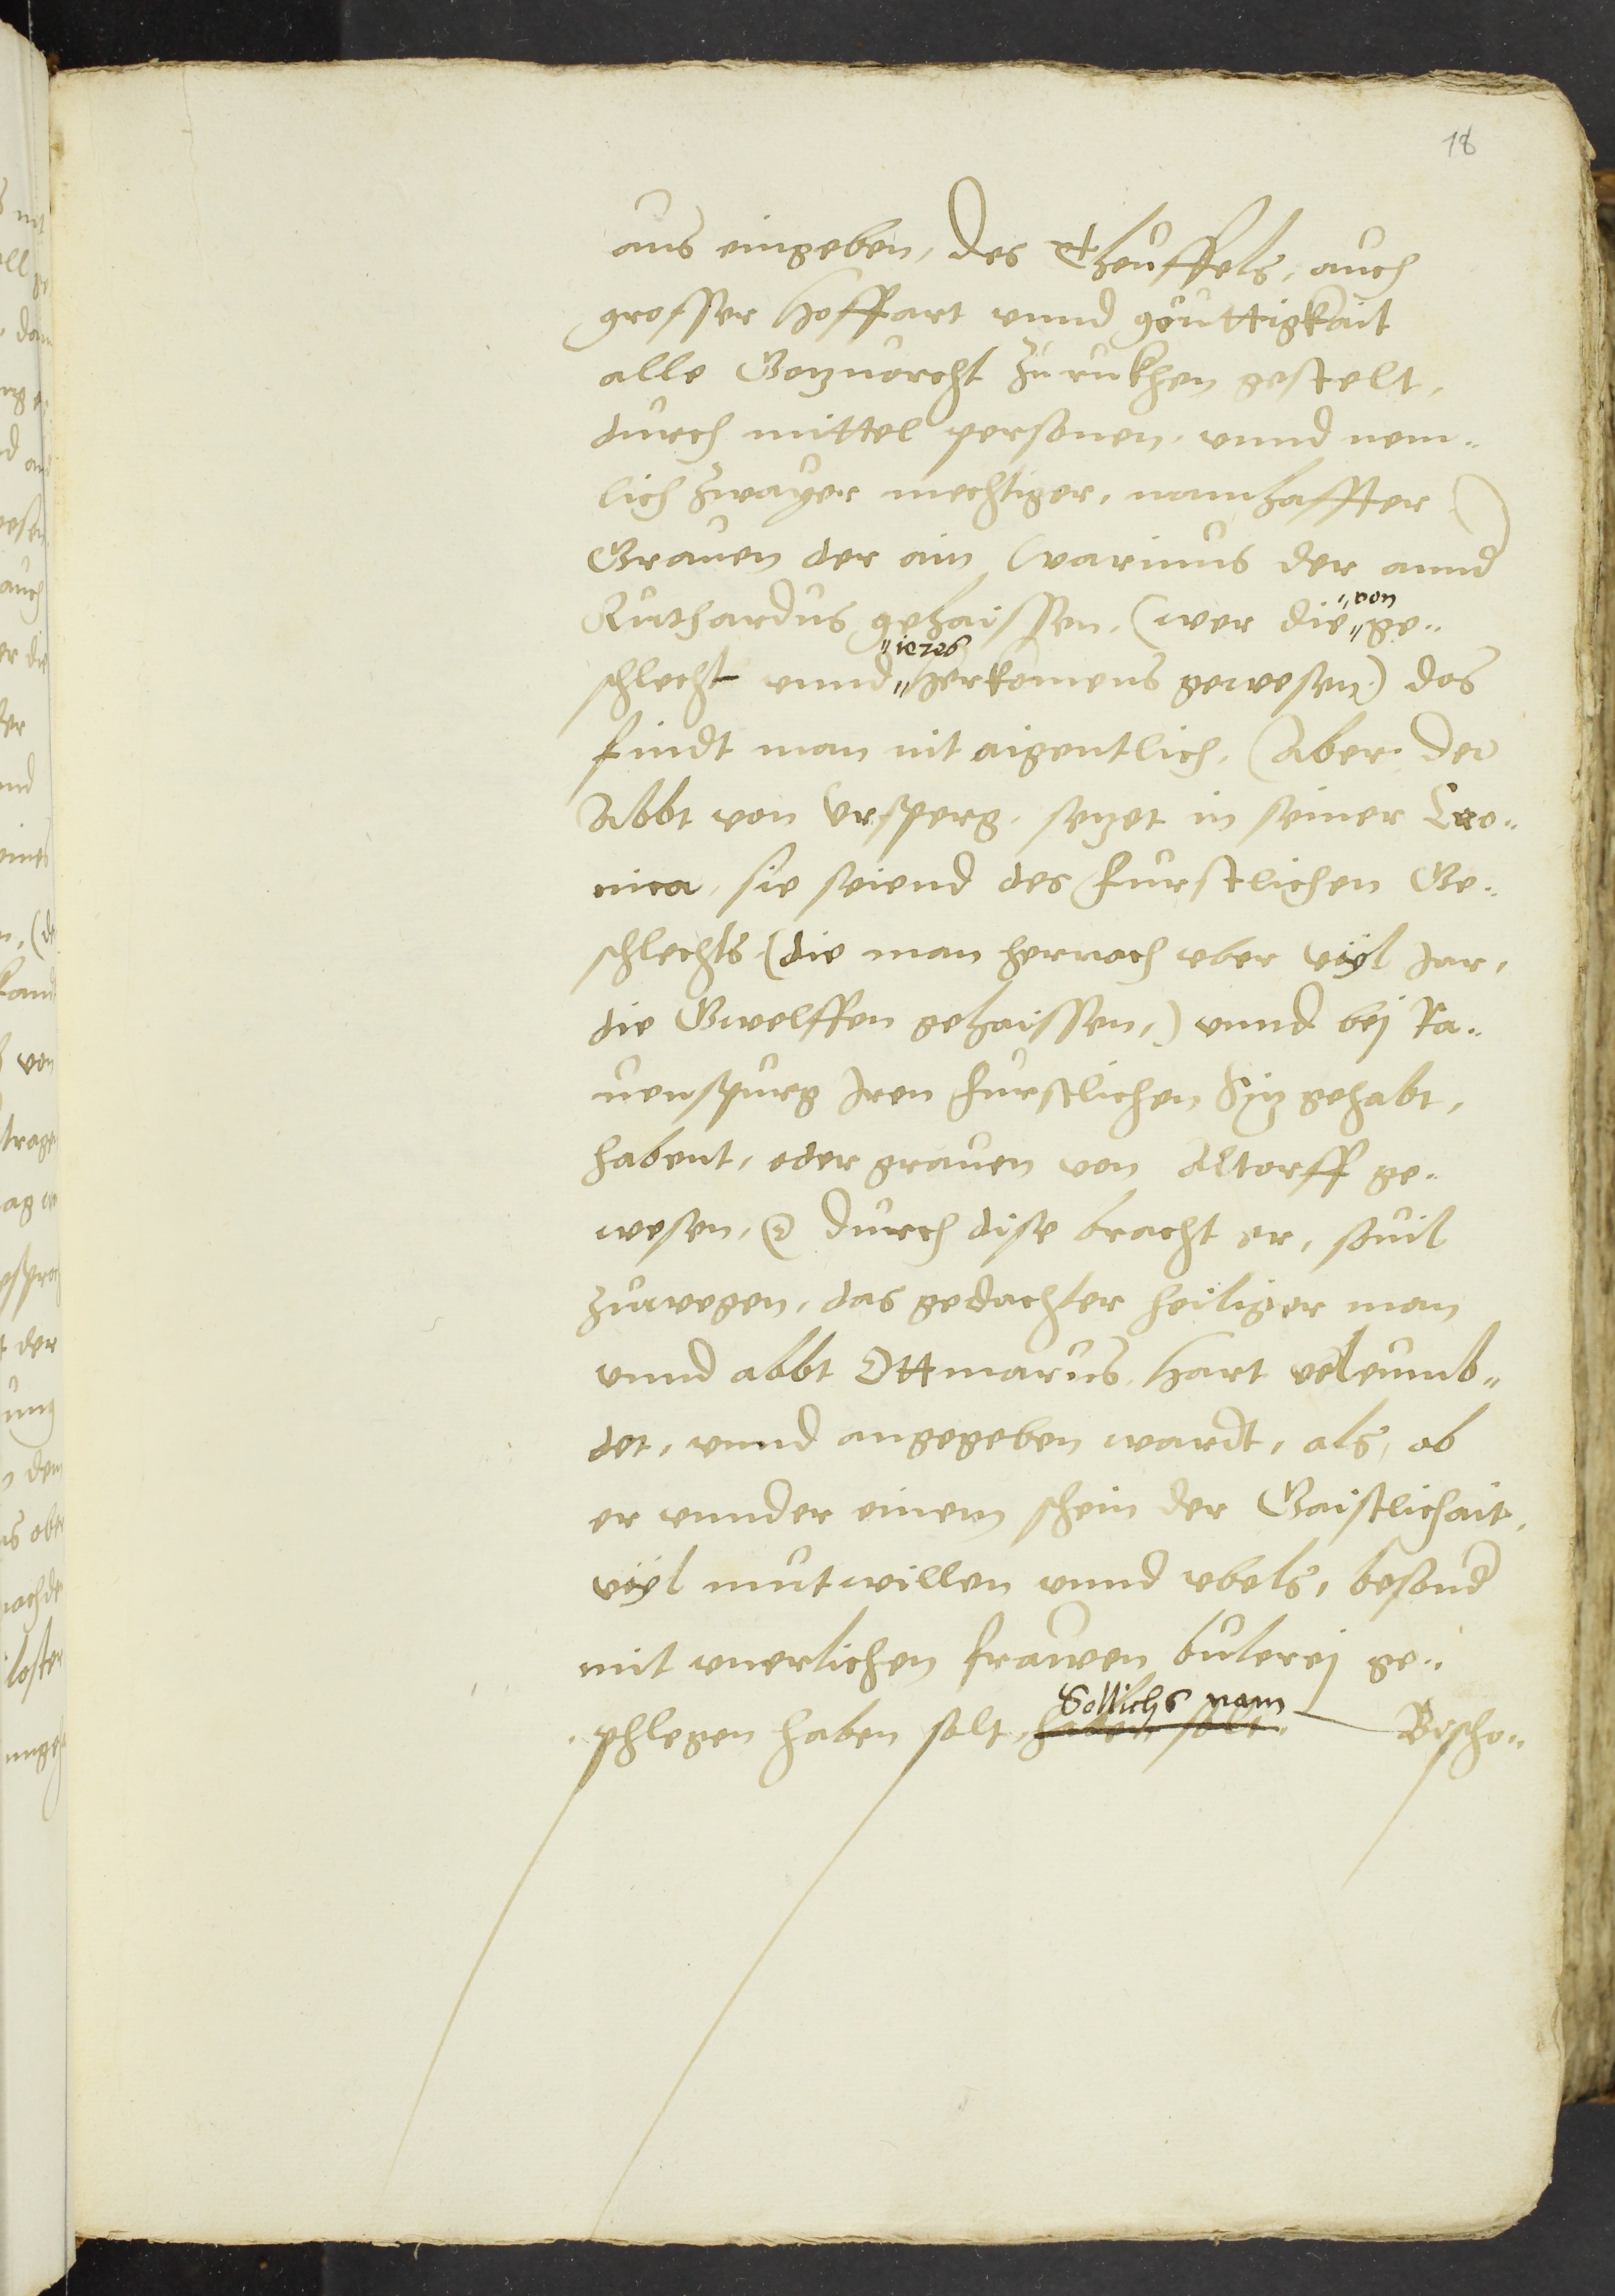 18
aus eingeben, des Theuffels, auch
grosser Hoffart vnnd geuttigkait
alle Gozuorcht zu rukhen gestelt,
durch mittel personen, vnnd nem„
lich zwayer mechtiger, namhaffter
Grauen der ain Warinus der annd
Ruthardus gehaissen, (wer die„ „von ge„
schlecht vnnd„ „herkomens gewesen) das
findt man nit aigentlich, Aber der
Abbt von Ursperg, sezet in seiner Cro„
nica, sie seiend des furstlichen Ge„
schlechts (die man hernach vber vÿl Jar,
die Gwelffen gehaissen,) vnnd bej Ra„
uenspurg Jren furstlichen Siz gehabt,
habent, oder grauen von Altorff ge„
wesen, durch dise bracht er, souil
zuwegen, das gedachter heiliger man
vnnd abbt Ottmarus, hart veleumb„
det, vnnd angegeben wardt, als, ob
er vnnder einem schein der Gaistlichait,
vÿl mutwillen vnnd vbels, besond
mit vnerlichen frauwen bulerej ge„
phlegen haben solt, haben solt. Sollichs nam Bescho„